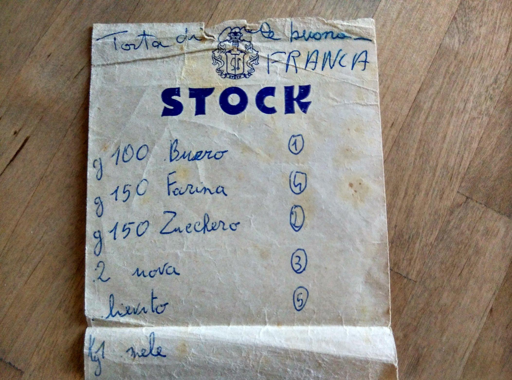 Torta di mele buona
FRANCA
STOCK
g 100 Burro ①
g 150 Farina ④
g 150 Zucchero ②
2 uova ③
lievito ⑤
Kg 1 mele